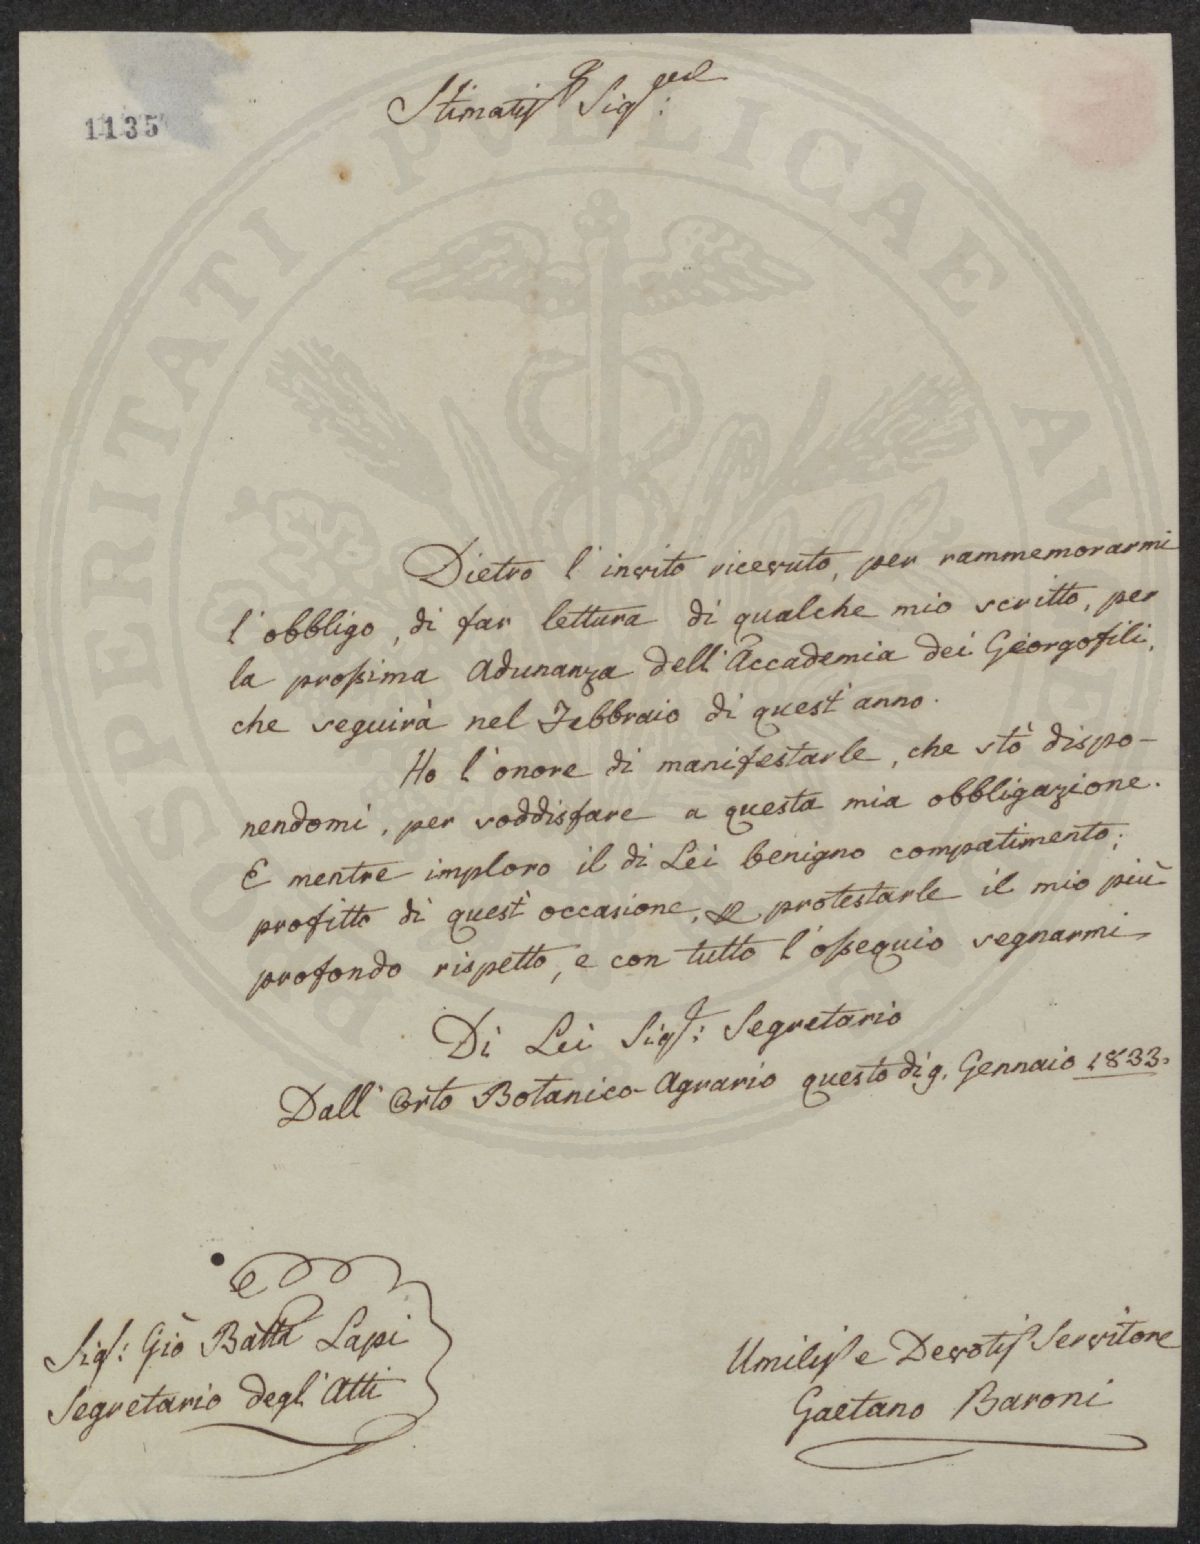 1135
Stimatiss. Sig.
Dietro l'invito ricevuto, per rammemorarmi
l'obbligo, di far lettura di qualche mio scritto, per
la prossima Adunanza dell'Accademia dei Georgofili,
che seguirà nel Febbraio di quest'anno.
Ho l'onore di manifestarle, che stò dispo-
nendomi, per soddisfare a questa mia obbligazione.
E mentre imploro il di Lei benigno compatimento;
profitto di quest'occasione, protestarle il mio più
profondo rispetto, e con tutto l'ossequio segnarmi
Di Lei Sig.: Segretario
Dall'Orto Botanico-Agrario questo dì 9. Gennaio 1833.
Sig.: Gio Batta Lapi
Segretario degl'Atti
Umiliss e Devotiss Servitore
Gaetano Baroni
PROSPERITATI PVBLICAE AV